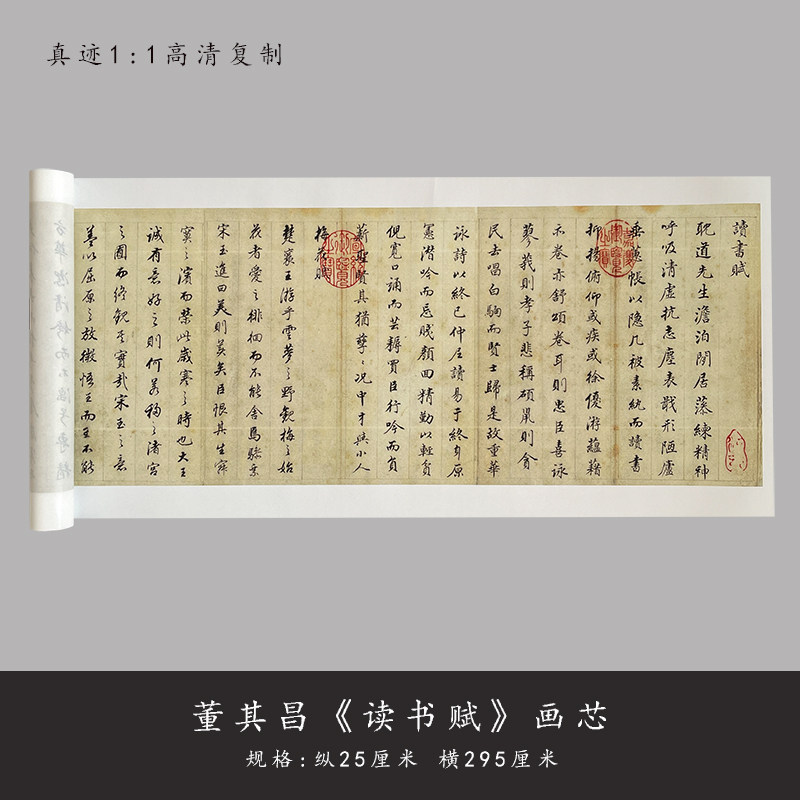 真迹1:1高清复制
讀書賦
耽道先生澹泊閑居藻練精神
呼吸清虛抗志塵表戢形陋廬
垂帷帳以隱几被素紈而讀書
抑揚俯仰或疾或徐優游蘊藉
亦卷亦舒頌卷耳則忠臣喜詠
蓼莪則孝子悲稱碩鼠則貪
民去唱白駒而賢士歸是故重華
詠詩以終已仲尼讀易于終身原
憲潛吟而忘賤顏回精勤以輕貧
倪寬口誦而芸耨買臣行吟而負
薪聖賢其猶孳〻況中才與小人
梅花賦
楚襄王游乎雲夢之野觀梅之始
花者愛之徘徊而不能舍焉驂乘
宋玉進曰美則美矣臣恨其生寂
寞之濱而榮此歲寒之時也大王
誠有意好之則何若移之渚宮
之囿而終觀其實哉宋玉之意
蓋以屈原之放微悟王而王不能
董其昌《读书赋》画芯
规格:纵25厘米 横295厘米